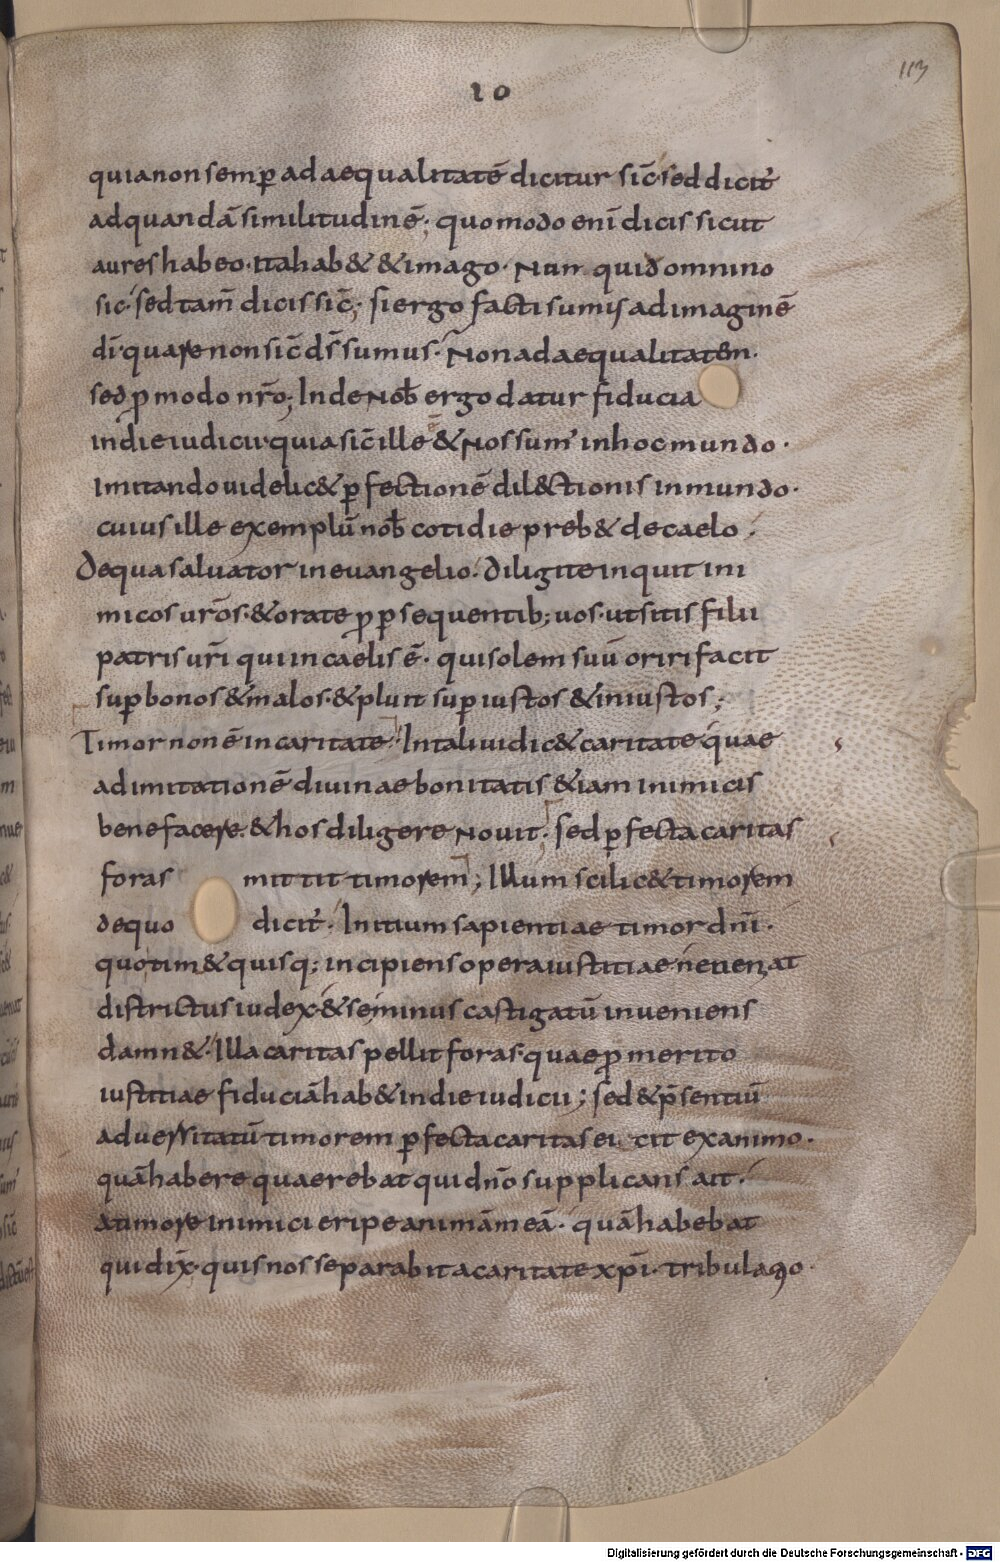 113
10
quia non semp̱ ad aequalitatē dicitur sic̄ sed dicit̄
ad quandā similitudinē; quomodo enī dicis sicut
aures habeo· ita hab& & imago· Num quid omnino
sic· sed tam̄ dicis sic̄; si ergo facti sumus ad imaginē
dī· quare non sic̄ d̄s sumus· Non ad aequalitatem·
sed p̱ modo nr̄o; Inde nob̄ ergo datur fiducia
in die iudicii· quia sic̄ ille & nos sum' in hoc mundo·
Imitando uidelic& p̱fectionē dil&ctionis in mundo·
cuius ille exemplū nob̄ cotidie preb& de caelo;
De qua saluator in euangelio· diligite inquit ini
micos ur̄os· & orate p̱ p̱sequentib; uos· ut sitis filii
patris ur̄i qui in caelis ē· qui solem suū oriri facit
sup̱ bonos & malos· & pluit sup̱ iustos & iniustos;
Timor non ē in caritate· In tali uidic& caritate quae
ad imitationē diuinae bonitatis &iam inimicis
bene facere· & hos diligere nouit· sed p̱fecta caritas
foras mittit timorem; Illum scilic& timorem
de quo dicit̄· Initium sapientiae timor dnī·
quo tim& quisq; incipiens opera iustitiae ne ueniat
districtus iudex· & se minus castigatū inueniens
damn&· Illa caritas pellit foras· quae p̱ merito
iustitiae fiduciā hab& in die iudicii; sed & p̄sentiū
aduersitatū timorem p̱fecta caritas ei cit ex animo·
quā habere quaerebat qui dn̄o supplicans ait·
A timore inimici eripe animā meā· quā habebat
qui dix̄· quis nos separabit a caritate xp̄i· tribulatio·
Digitalisierung gefördert durch die Deutsche Forschungsgemeinschaft - DFG